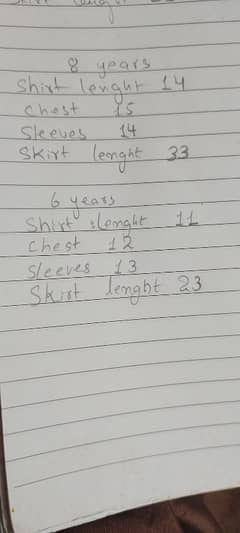 8 years
Shirt lenght 14
Chest 15
Sleeves 14
Skirt lenght 33
6 years
Shirt lenght 11
Chest 12
Sleeves 13
Skirt lenght 23